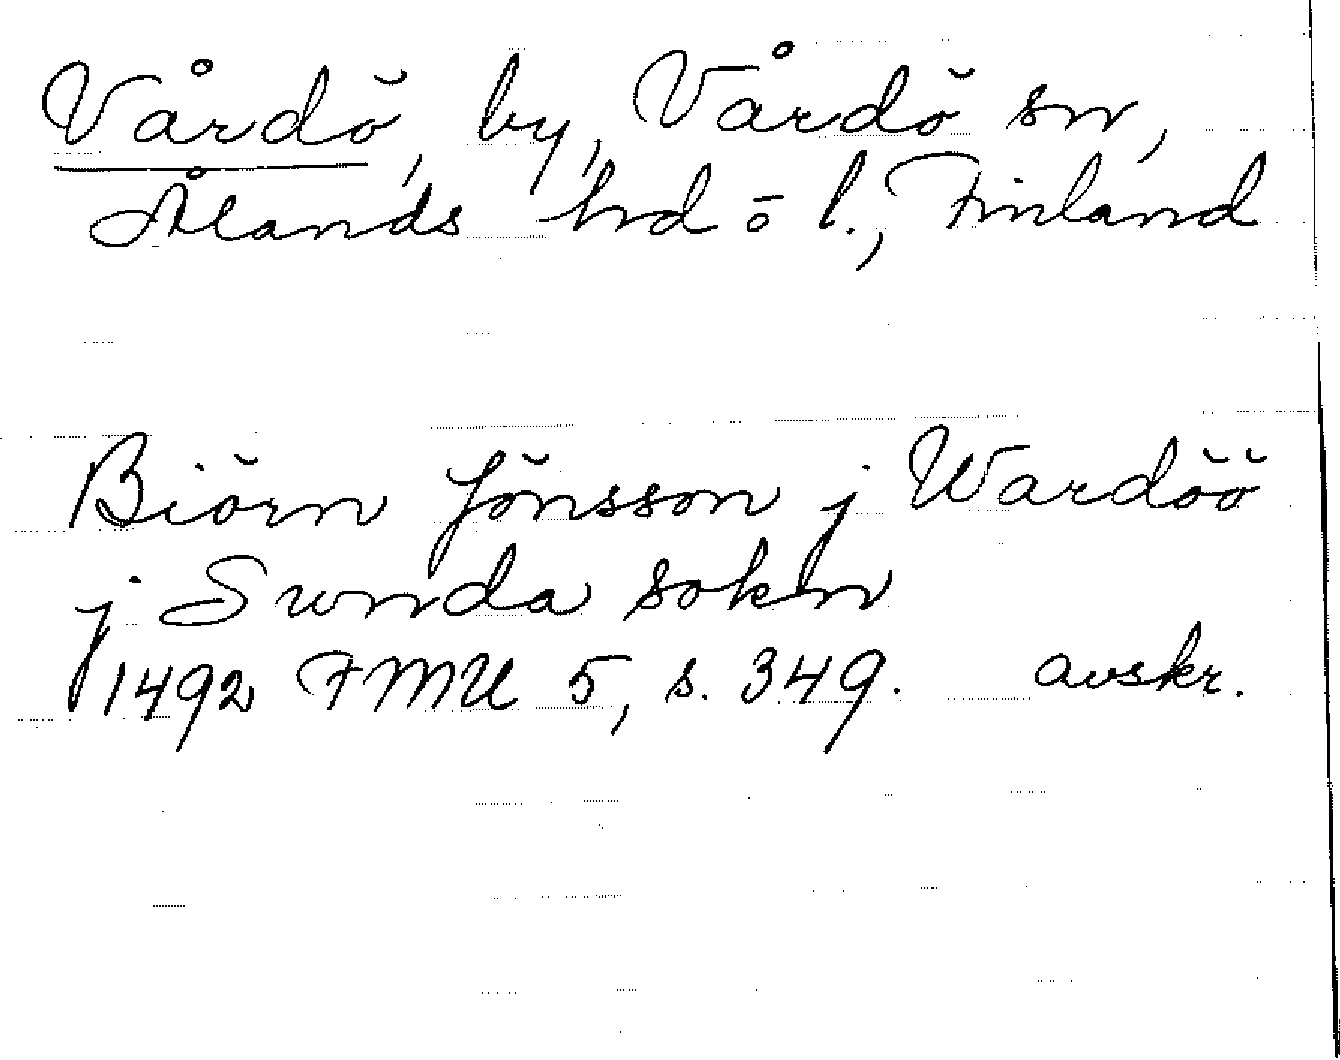 Vårdö, by, Vårdö sn,
Ålands hd o l., Finland
Biörn Jönsson j Wardöö
j Sunda sokn
1492 FMU 5, s. 349. avskr.